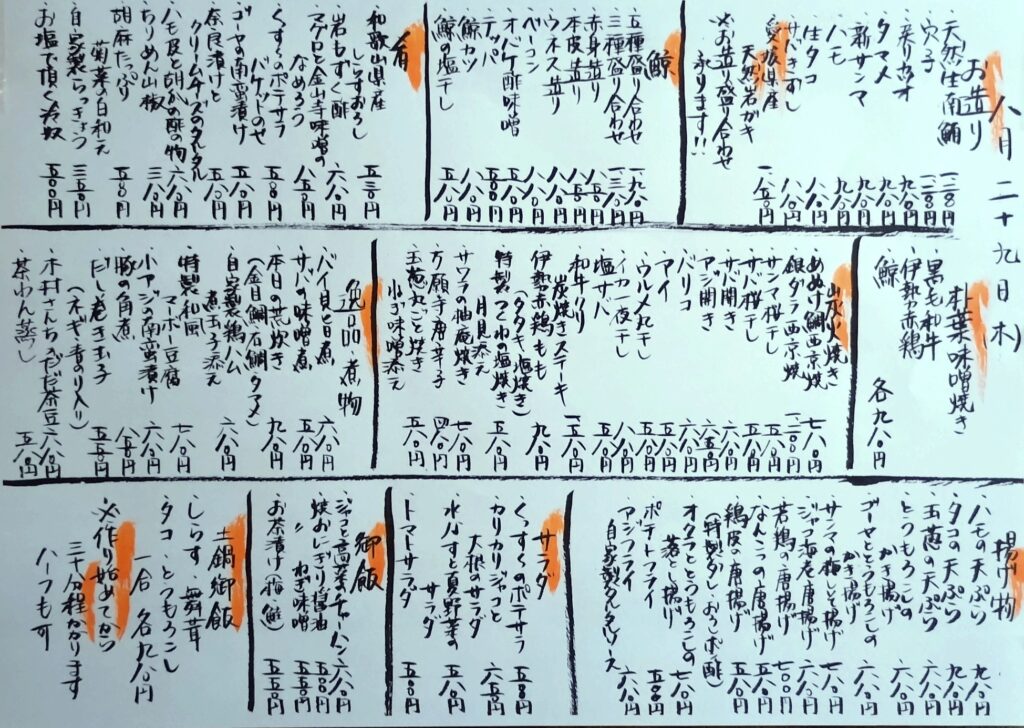 八月二十九日(木)
お造り
・天然生南鮪 一二八〇円
・穴子 一二八〇円
・釆りカツオ 九八〇円
・タマメ 九八〇円
・新サンマ 九八〇円
・ハモ 九八〇円
・生タコ 八八〇円
・サバきずし 八八〇円
・愛媛県産
天然岩ガキ 一八五〇円
※お造り盛り合わせ
承ります!!
鯨
・五種盛り合わせ 一九八〇円
・三種盛り合わせ 一三八〇円
・赤身造り 八八〇円
・本皮造り 八五〇円
・ウネス造り 八八〇円
・ベーコン 一八八〇円
・オバケ酢味噌 五八〇円
・テッパ 五八〇円
・鯨カツ 八八〇円
・鯨の塩干し 五八〇円
肴
・和歌山県産
しらすおろし 五三〇円
・岩もずく酢 六八〇円
・マグロと金山寺味噌の
なめろう 八五〇円
・くずくずのポテサラ 五八〇円
バゲットのせ
・ゴーヤの南蛮漬け 五八〇円
・クリームチーズのタルタル
奈良漬けと 五八〇円
・ハモ皮と胡瓜の酢の物 六八〇円
・ちりめん山椒 三八〇円
・胡麻たっぷり
菊菜の白和え 五八〇円
・自家製らっきょう 三五〇円
・お塩で頂く冷奴 五〇〇円
朴葉味噌焼き
・黒毛和牛
・伊勢赤鶏
・鯨
各九八〇円
炭火焼き
・あぬけ鯛西京焼 七八〇円
・銀ダラ西京焼 一二〇〇円
・サンマ桜干し
・サバ桜干し
・サバ開き
・アジ開き
・バリコ
・アイ
・ウルメ丸干し
・イカ一夜干し
・塩サバ
・和牛ハリ
炭焼きステーキ
・伊勢赤鶏もも
(タタキ、塩焼き) 九八〇円
・特製つくね塩焼き
月見添え 五八〇円
・サワラの柚庵焼き 七八〇円
・万願寺唐辛子 四八〇円
・玉葱丸ごと焼き
小さじ味噌添え 五八〇円
逸品・煮物
・バイ貝旨煮 六八〇円
・サバの味噌煮 八八〇円
・本日の荒炊き 九八〇円
(金目鯛、石鯛、タマメ)
・自家製鶏ハム
煮玉子添え 六八〇円
・特製和風
マーボー豆腐 七八〇円
・小アジの南蛮漬け 六八〇円
・豚の角煮 八五〇円
・だし巻き玉子 五五〇円
(ネギ、青のり入り)
・木村さんちのだだ茶豆 六八〇円
・茶わん蒸し 五八〇円
揚げ物
・ハモの天ぷら 九八〇円
・タコの天ぷら 九八〇円
・玉葱の天ぷら 六八〇円
・とうもろこしの
かき揚げ 六八〇円
・ゴーヤととうもろこしの
かき揚げ 六八〇円
・サンマの梅しそ揚げ 七八〇円
・ジャコ海老唐揚げ 六八〇円
・若鶏の唐揚げ 七〇〇円
・なんこつの唐揚げ 五八〇円
・鶏皮の唐揚げ 五五〇円
(特製だし、おろしポン酢)
・オクラととうもろこしの
落とし揚げ 七八〇円
・ポテトフライ 五〇〇円
・アジフライ
自家製タルタルソース 六八〇円
サラダ
・くずくずのポテサラ 五八〇円
・カリカリジャコと
大根のサラダ 六五〇円
・水なすと夏野菜の
サラダ 五八〇円
・トマトサラダ 五〇〇円
御飯
・ジャコと高菜のチャーハン 六八〇円
・焼おにぎり醤油 五〇〇円
・〃 ねぎ味噌 五五〇円
・お茶漬け(梅、鮭) 五五〇円
土鍋御飯
・しらす、舞茸
タコ、とうもろこし
一合 各九八〇円
※作り始めてから
三十分程かかります
ハーフもす